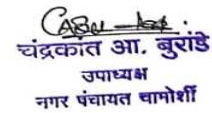 चंद्रकांत आ. बुरांडे
उपाध्यक्ष
नगर पंचायत चामोर्शी